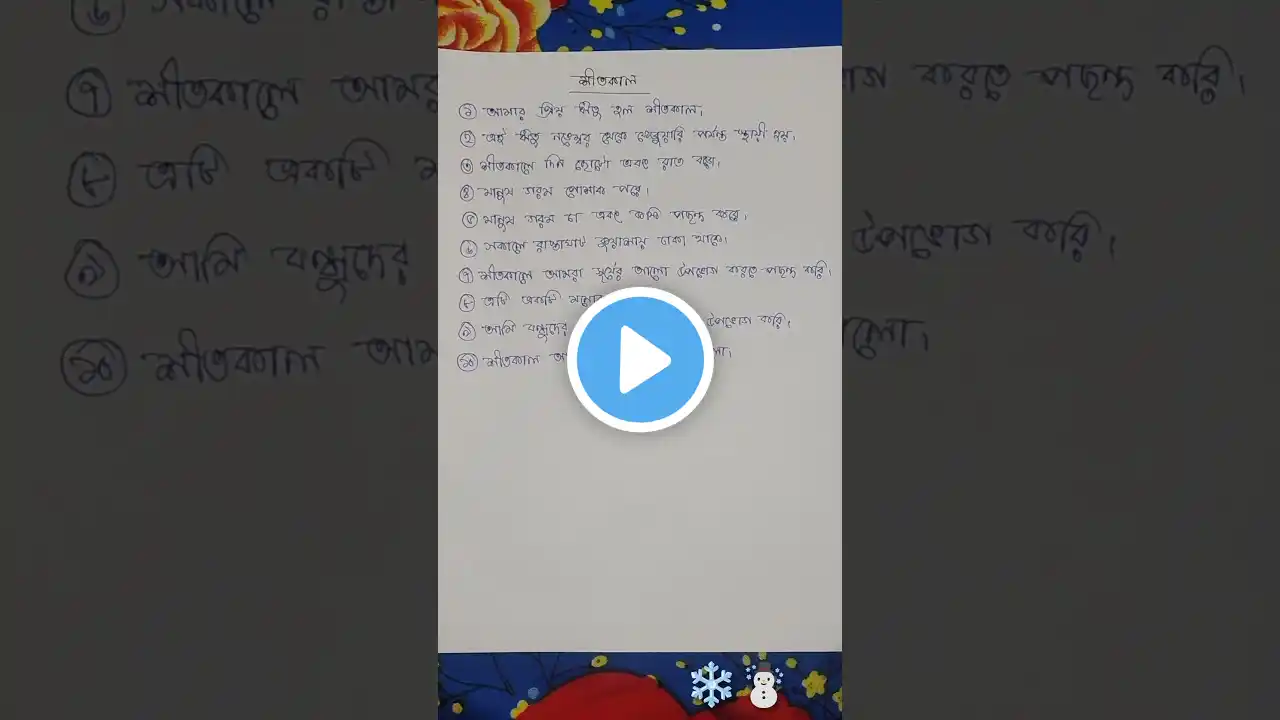 শীতকাল
১ আমার প্রিয় ঋতু হল শীতকাল।
২ এই ঋতু নভেম্বর থেকে ফেব্রুয়ারি পর্যন্ত স্থায়ী হয়।
৩ শীতকালে দিন ছোটো এবং রাত বড়ো।
৪ মানুষ গরম পোশাক পরে।
৫ মানুষ গরম চা এবং কফি পছন্দ করে।
৬ সকালে রাস্তাঘাট কুয়াশায় ঢাকা থাকে।
৭ শীতকালে আমরা সূর্যের আলো উপভোগ করতে পছন্দ করি।
৮ এটি একটি
৯ আমি বন্ধুদের উপভোগ করি।
১০ শীতকাল